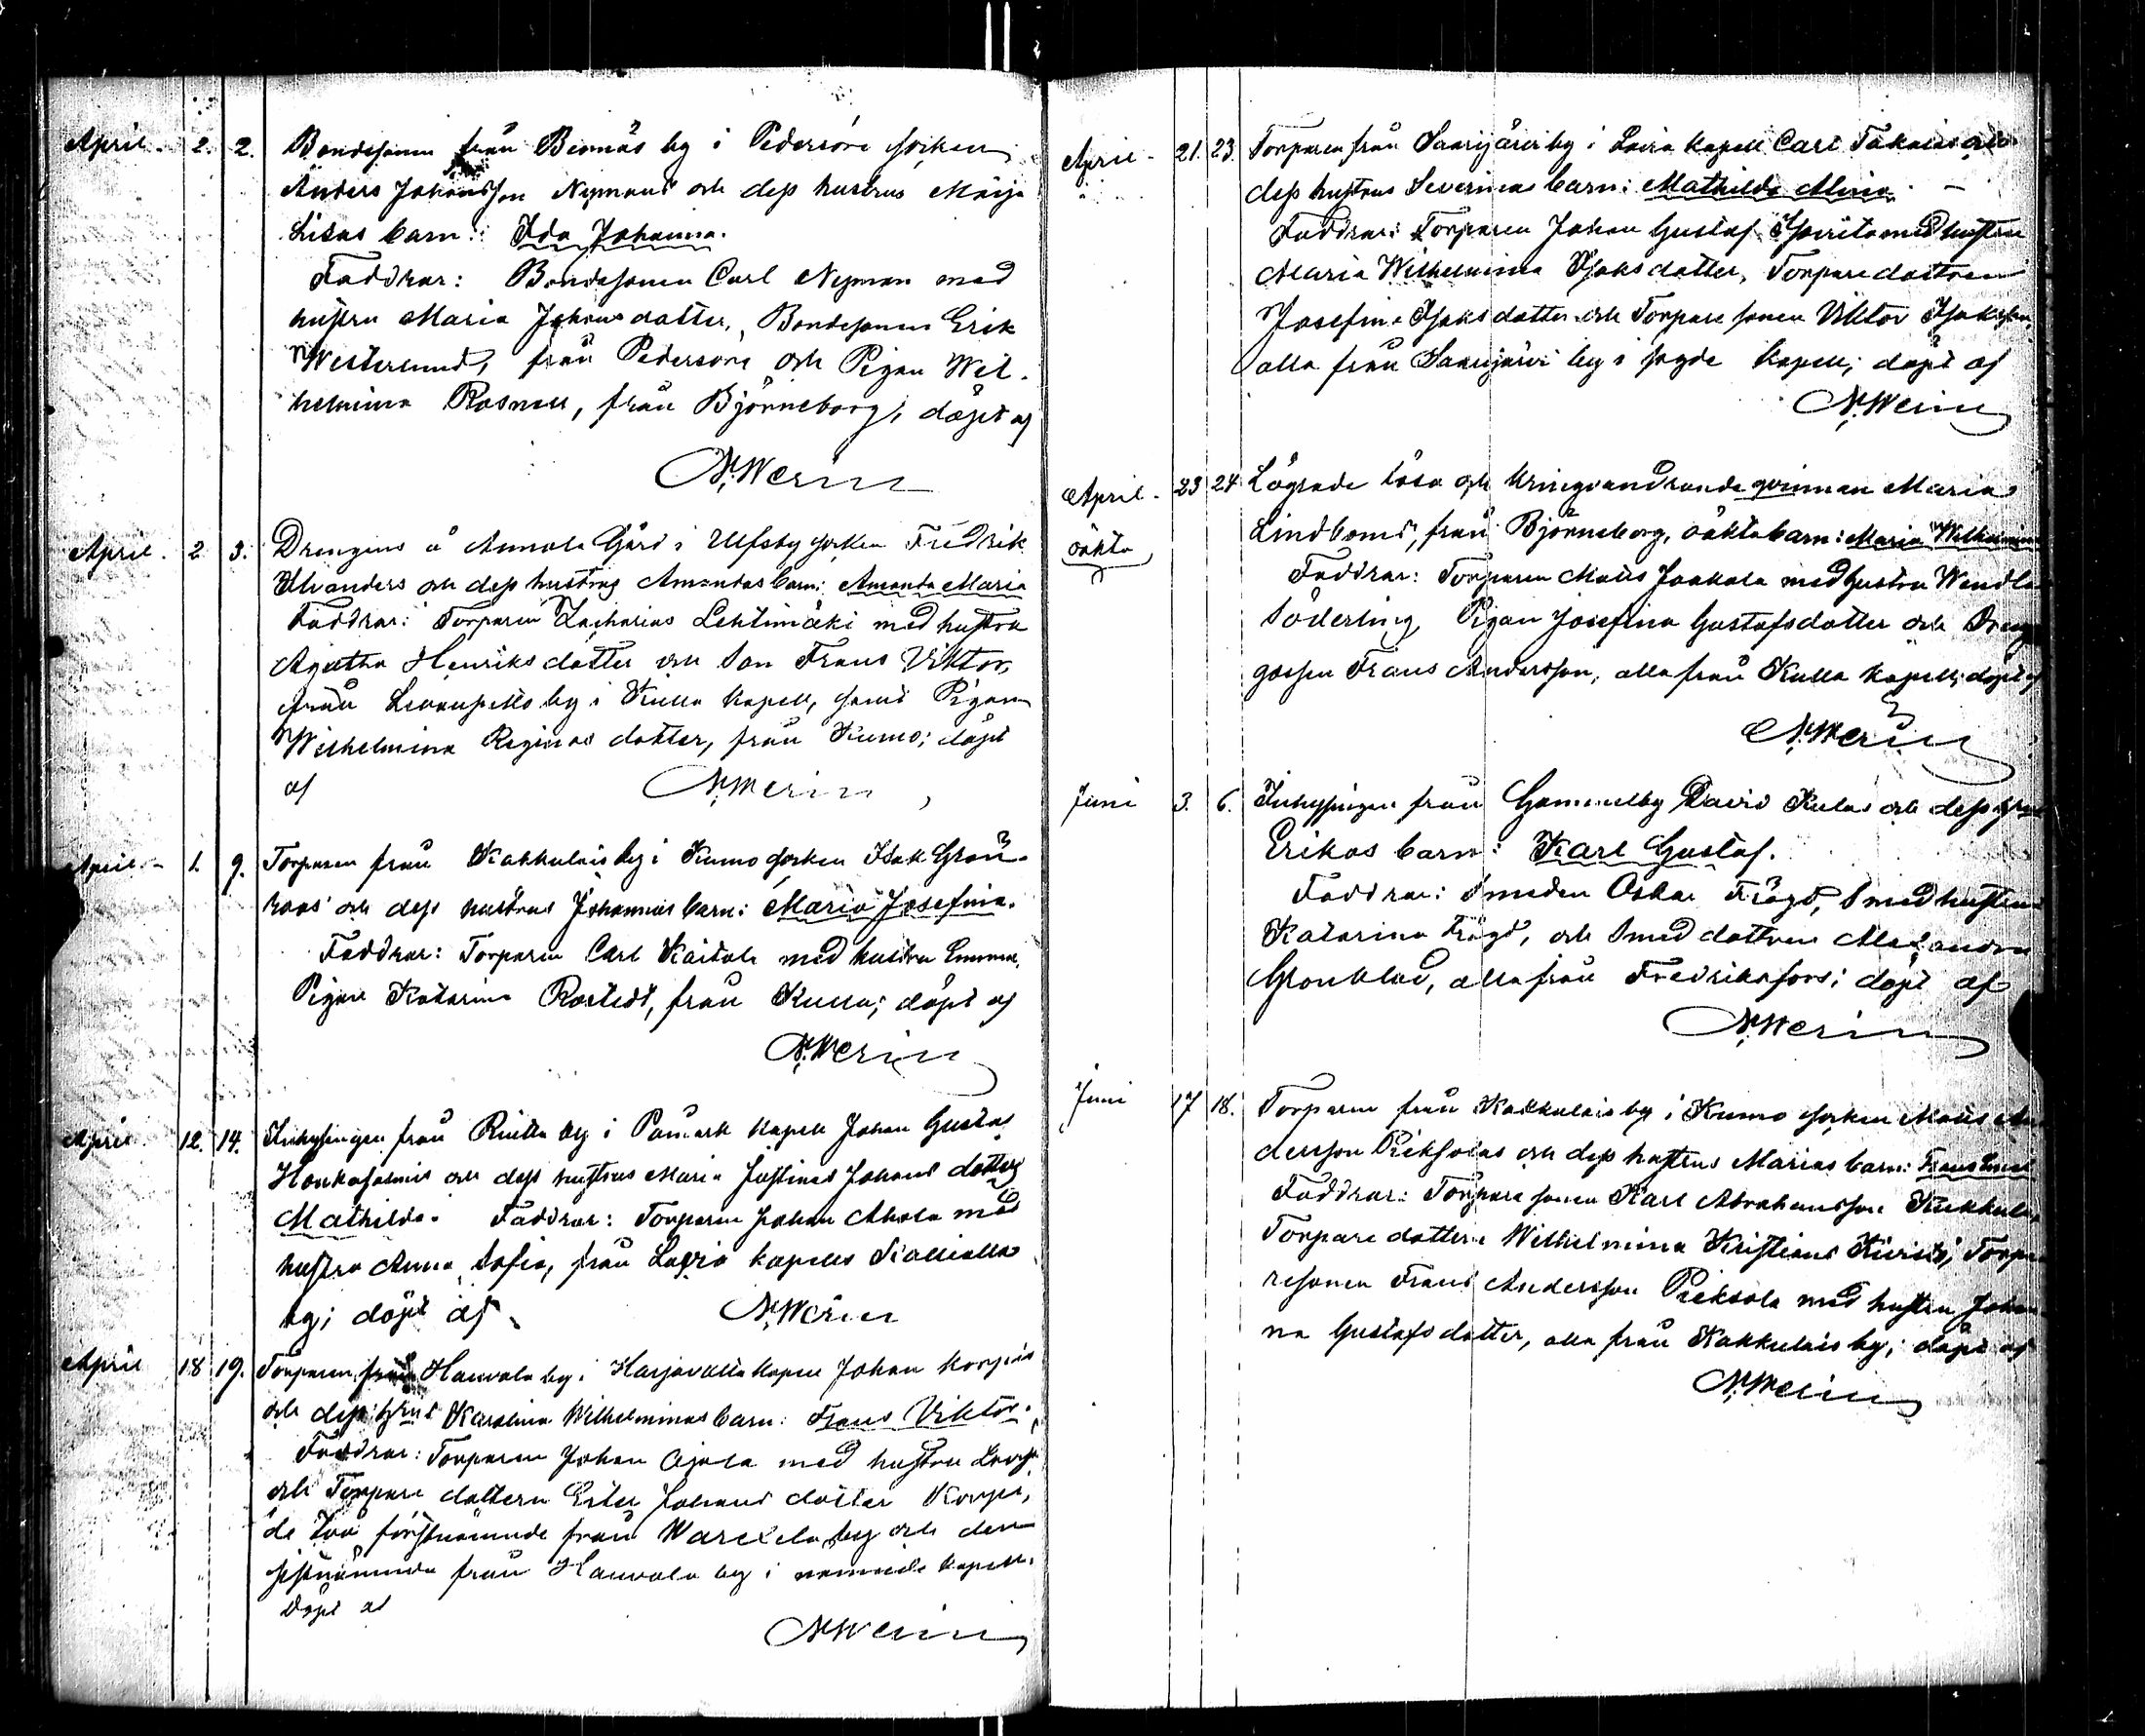 April. 2. 2. Bondesonen från Bennäs by i Pedersöre socken
Anders Johansson Nymans och dess hustrus Maija
Lisas barn: Ida Johanna.
Faddrar: Bondesonen Carl Nyman med
hustru Maria Johansdotter, Bondesonen Erik
Westerlund, från Pedersöre och Pigan Wil-
helmina Rosnell, från Björneborg; döpt af
N. Werin
April. 2 3. Drengens å Annola Gård i Ulfsby socken Fredrik
Alvanders och dess hustrus Amandas barn: Amanda Maria
Faddrar: Torparen Zacharias Lehtimäki med hustru
Agatha Henriksdotter och Son Frans Viktor,
från by i Kulla kapell, samt Pigan
Wilhelmina Reginas dotter, från Kumo; döpt
af N. Werin
April 1. 9. Torparen från Kakkulais by i Kumo socken Isak Grön-
roos' och dess hustrus Johannas barn: Maria Josefina.
Faddrar: Torparen Carl Kaitala med hustru Emma,
Pigan Katarina Rostedt, från Kulla; döpt af
N. Werin
April 12. 14. Inhysingen från by i Påmark kapell Johan Gustaf
Honkasalmis och dess hustrus Maria Justinas Johans dotters
Mathilda. Faddrar: Torparen Johan Ahola med
hustru Anna Sofia, från Lavia kapells
by; döpt af N. Werin
April 18 19. Torparen från Hauvola by i Harjavalta kapell Johan Korpis
och dess hrus Karolina Wilhelminas barn: Frans Viktor.
Faddrar: Torparen Johan Ojala med hustru
och Torpare dottern Ester Johans dotter Korpi,
de två förstnämnde från by och den
sistnämnda från Hauvola by i nämnde kapell.
döpt af
N. Werin
April. 21. 23. Torparen från Saarijärvi by i Lavia kapell Carl och
dess hustrus Severinas barn: Mathilda Alina. —
Faddrar: Torparen Johan Gustaf med hustru
Maria Wilhelmina Isaksdotter, Torparedottren
Josefina Isaksdotter och Torpare sonen Viktor Isaksson
alla från Saarijärvi by i sagde kapell; döpt af
N. Werin
April. 23 24 Lägrade lösa och kringvandrande qvinnan Maria
oäkta Lindboms, från Björneborg, oäkta barn: Maria Wilhelmina
Faddrar: Torparen Matts Jaakola med hustru Wendla
Söderling, Pigan Josefina Gustafsdotter och Dreng
gossen Frans Andersson, alla från Kulla kapell; döpt af
N. Werin
Juni 3. 6. Inhysingen från Gammelby David Kulas och dess hrus
Erikas barn: Karl Gustaf.
Faddrar: Smeden Oskar Frägd, Smedhustrun
Katarina Frägd, och Smed dottren Alexandra
Gronblad, alla från Fredriksfors; döpt af
N. Werin
Juni 17 18. Torparen från Kakkulais by i Kumo socken Matts An
dersson Prihsolas och dess hustrus Marias barn: Frans
Faddrar: Torpare sonen Karl Abrahamsson
Torpare dottern Wilhelmina Kristians Torpa
resonen Frans Andersson med hustru Johan
na Gustafsdotter, alla från Kakkulais by; döpt af
N. Werin